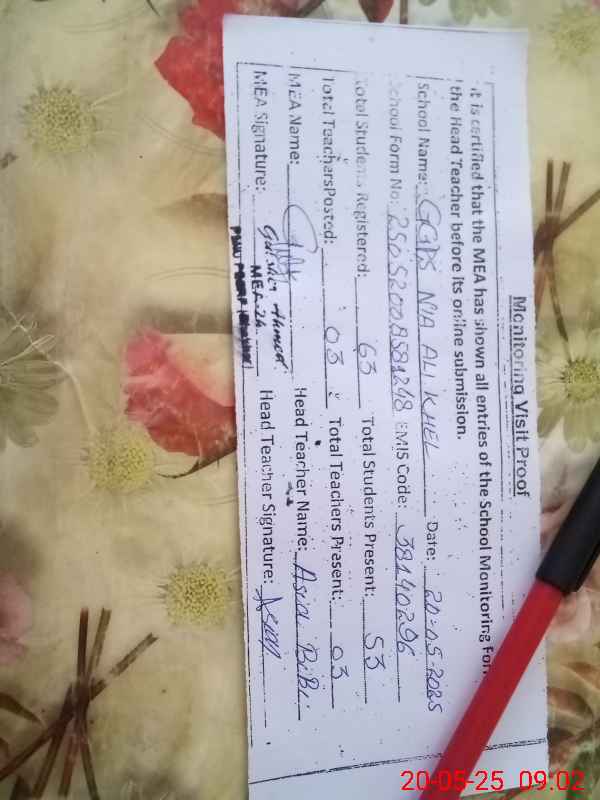 Monitoring Visit Proof
It is certified that the MEA has shown all entries of the School Monitoring Form
the Head Teacher before its online submission.
School Name: GGPS NIA ALI KHEL Date: 20-05-2025
School Form No: 25052008581248 EMIS Code: 38140296
Total Students Registered: 63 Total Students Present: 53
Total TeachersPosted: 03 Total Teachers Present: 03
MEA Name: Head Teacher Name: Asia BiBi
MEA Signature: Gulsher Ahmed Head Teacher Signature: Asia
MEA-24
20-05-25 09:02